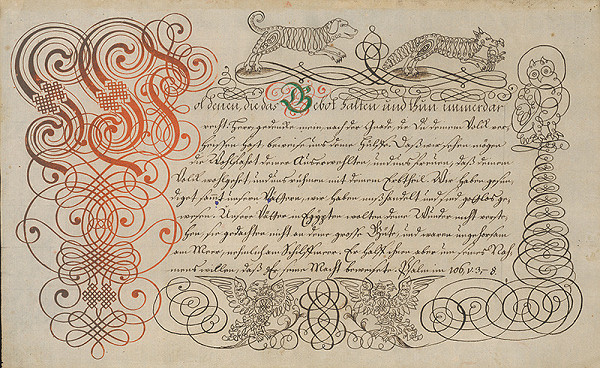 Wol denen, die das Gebot halten und thun immerdar
recht. Herr, gedencke mein nach der Gnade, die Du deinem Volk ver=
heissen hast, beweise uns deine Hülffe, Daß wir sehen mögen
die Wohlfahrt deiner Außerwehlten, und uns freuen, daß deinem
Volk wohlgehet, und uns rühmen mit deinem Erbtheil. Wir haben gesün=
diget samt unsern Vätern, wir haben mißhandelt und sind gottlos ge=
wesen. Unsere Väter in Egypten wolten deine Wunder nicht verste=
hen, sie gedachten nicht an deine grosse Güte, und waren ungehorsam
am Meer, nehmlich am Schilffmeer. Er halff ihnen aber um seines Nah=
mens willen, daß Er seine Macht bewiesete. Psalm 106, v. 3.-8.